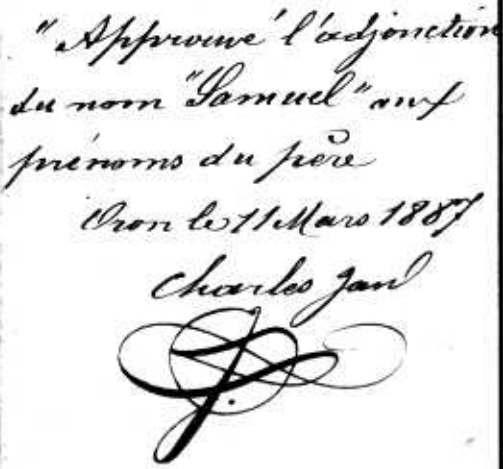 "Approuvé l'adjonction
du nom "Samuel" aux
prénoms du père
Oron le 11 Mars 1887
Charles Jan